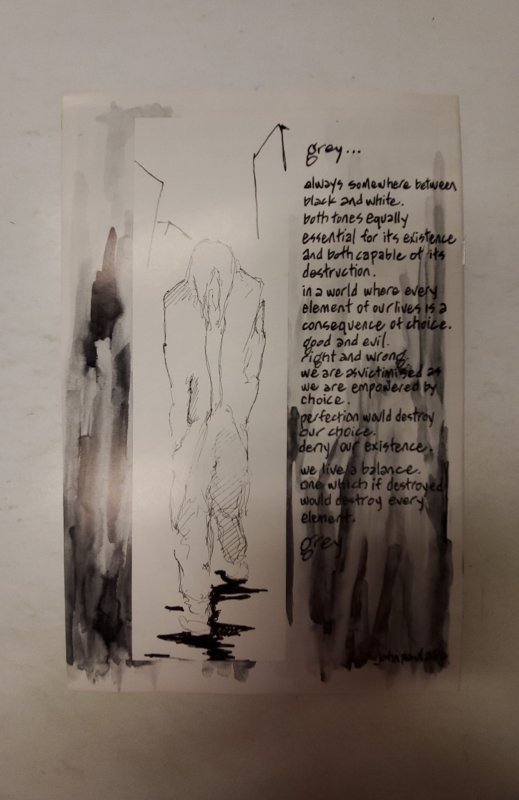 grey...
always somewhere between
black and white.
both tones equally
essential for its existence
and both capable of its
destruction.
in a world where every
element of our lives is a
consequence of choice.
good and evil.
right and wrong.
we are asvictimised as
we are empowered by
choice.
perfection would destroy
our choice.
deny our existence.
we live a balance.
one which if destroyed
would destroy every
element.
grey